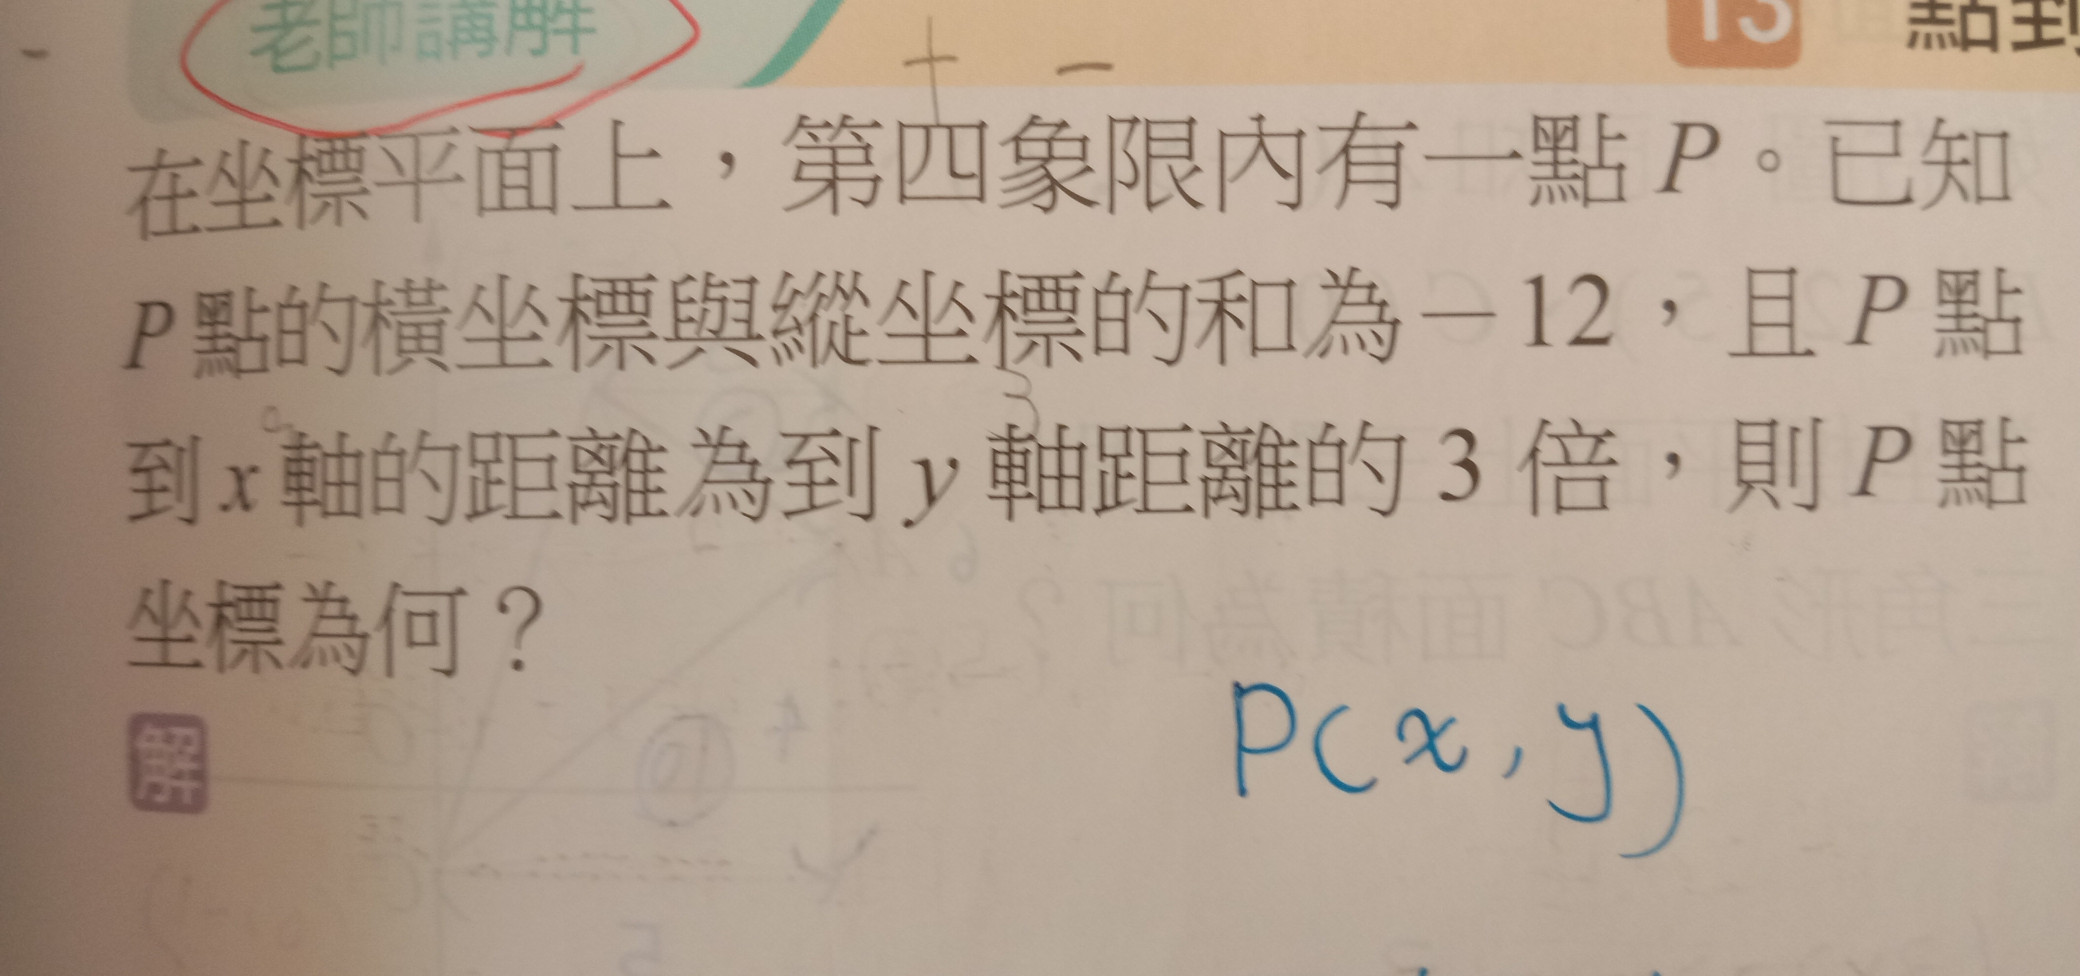 老師講解
13 點到
+ −
在坐標平面上，第四象限內有一點 P。已知
P 點的橫坐標與縱坐標的和為－12，且 P 點
3
到 x 軸的距離為到 y 軸距離的 3 倍，則 P 點
坐標為何？
P(x, y)
解
三角形 ABC 面積為何？